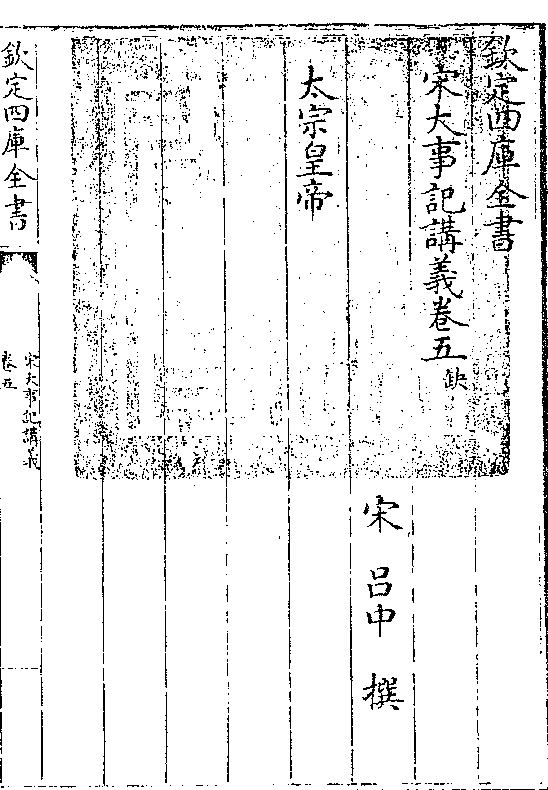 欽定四庫全書
宋大事記講義卷五缺
宋 吕中 撰
太宗皇帝
欽定四庫全書
宋大事記講義
卷五